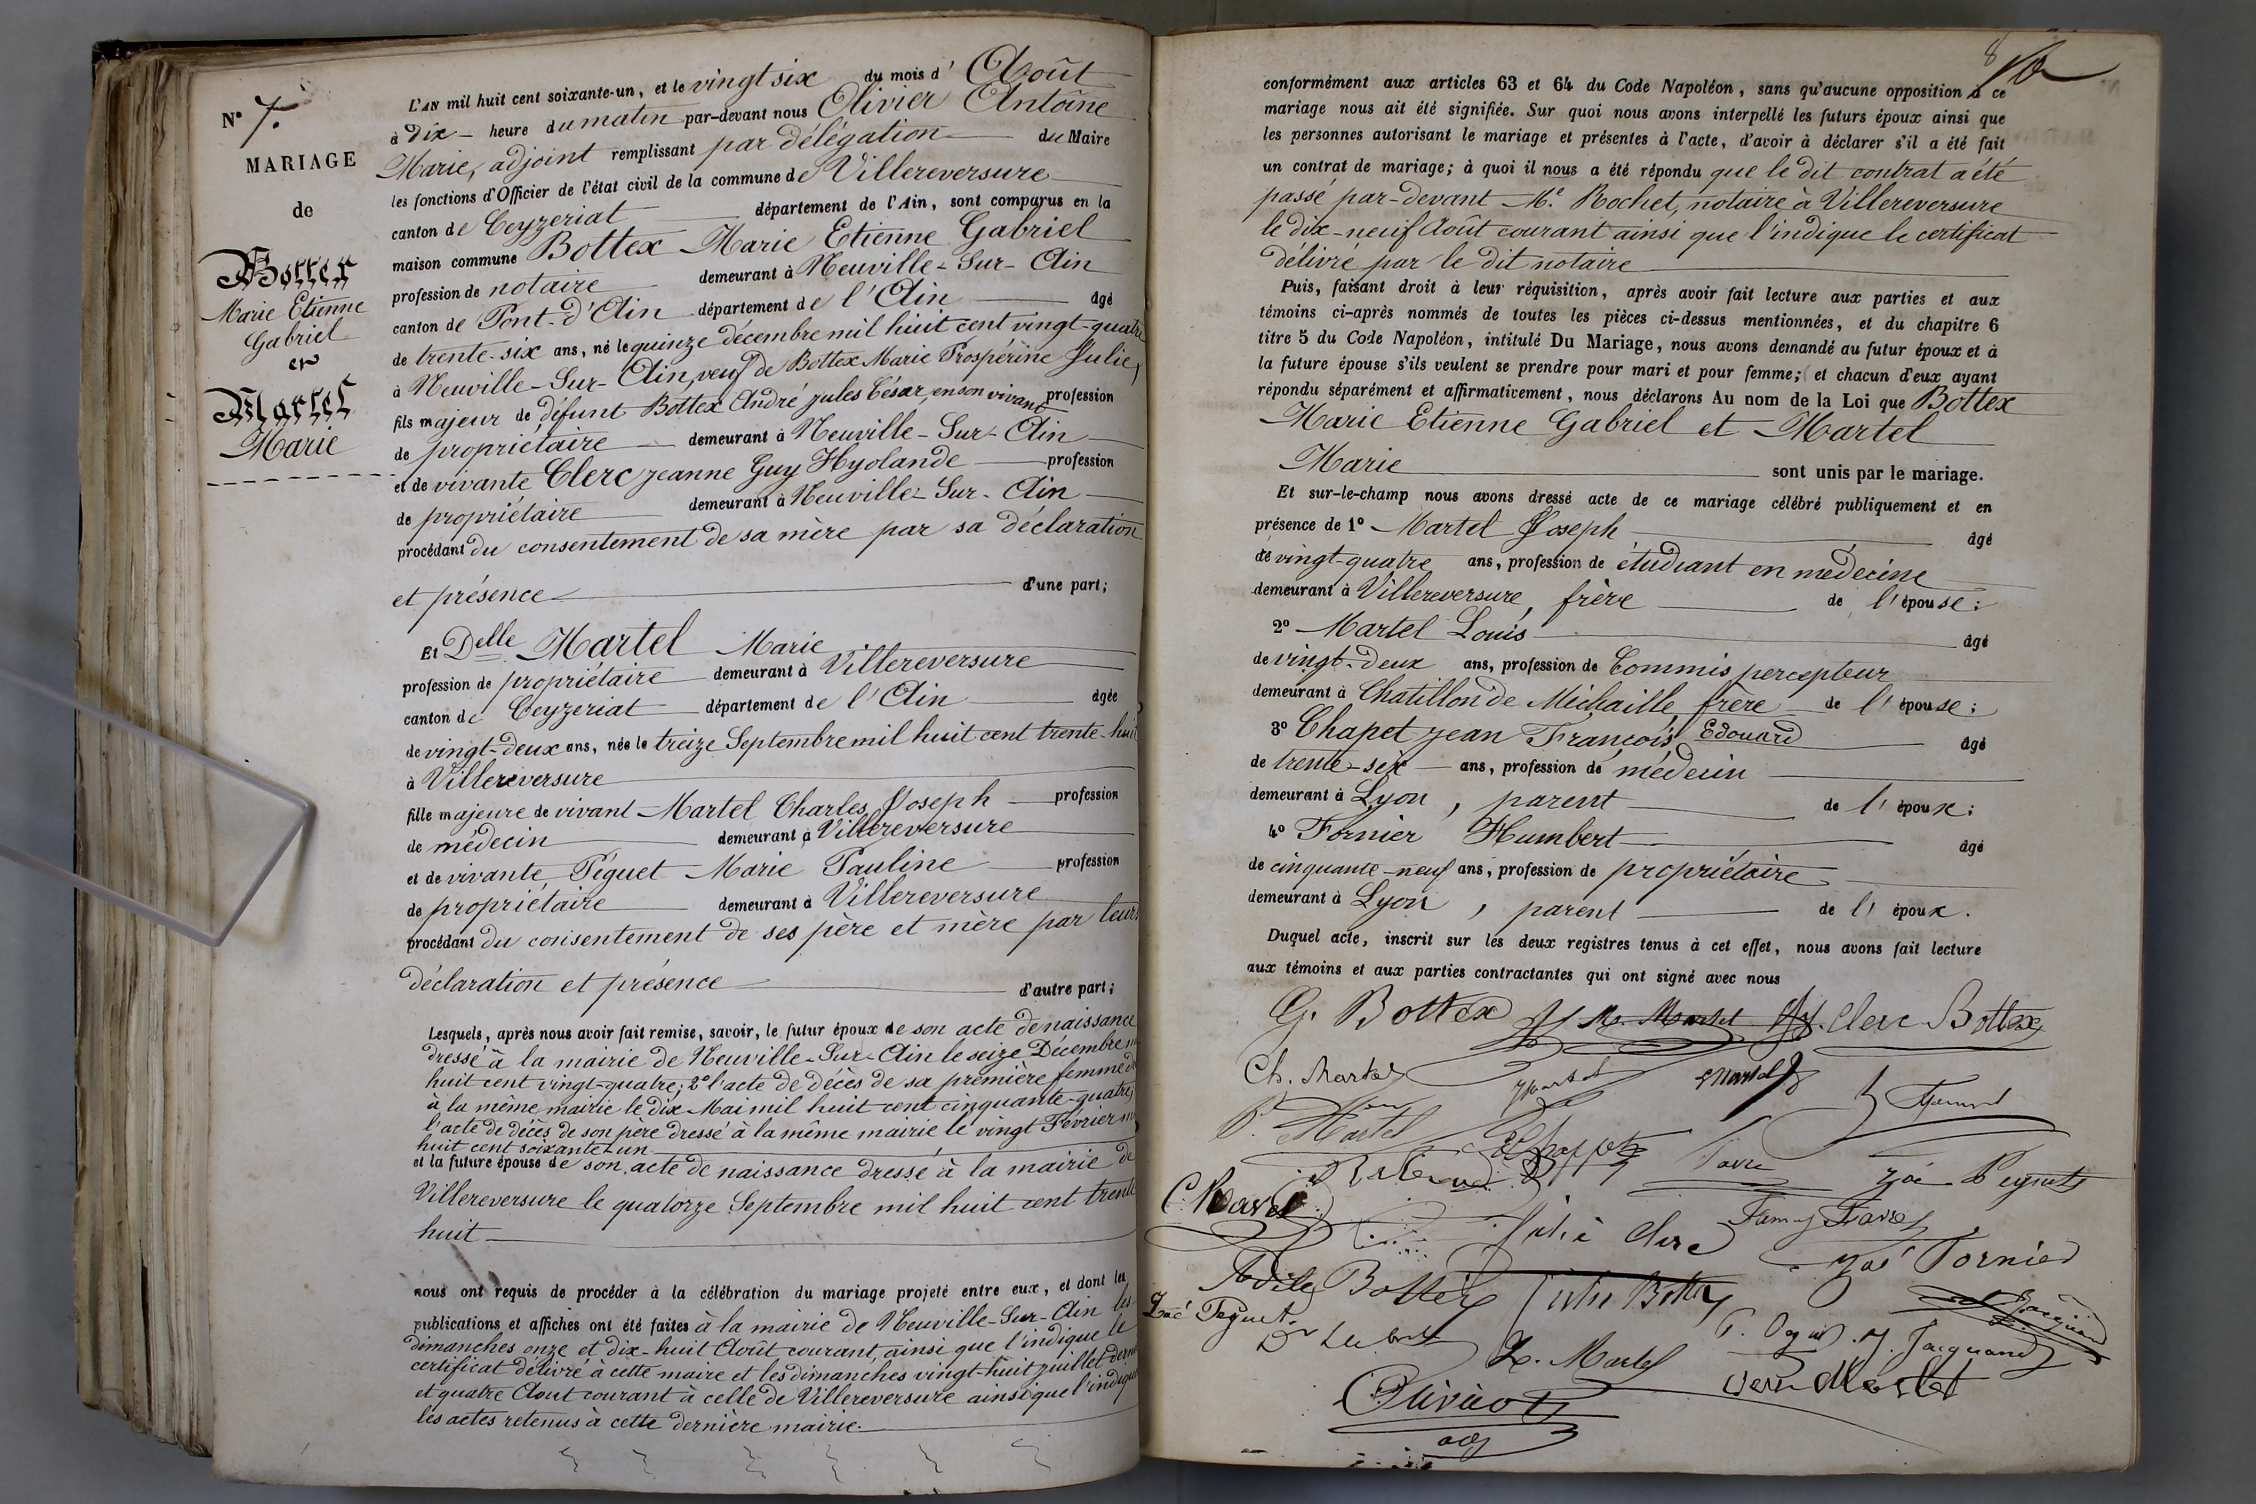 N° 7.
MARIAGE
de
Bottex
Marie Etienne
Gabriel
et
Martel
Marie
L'AN mil huit cent soixante-un, et le vingt six du mois d'Août
à dix heure du matin par-devant nous Olivier Antoine
Marie, adjoint remplissant par délégation du Maire
les fonctions d'Officier de l'état civil de la commune de Villereversure
canton de Ceyzeriat département de l'Ain, sont comparus en la
maison commune Bottex Marie Etienne Gabriel
profession de notaire demeurant à Neuville-Sur-Ain
canton de Pont-d'Ain département de l'Ain âgé
de trente-six ans, né le quinze décembre mil huit cent vingt-quatre
à Neuville-Sur-Ain, veuf de Bottex Marie Prospérine Julie,
fils majeur de défunt Bottex André jules César, en son vivant profession
de propriétaire demeurant à Neuville-Sur-Ain
et de vivante Clerc jeanne Guy Hyolande profession
de propriétaire demeurant à Neuville-Sur-Ain
procédant du consentement de sa mère par sa déclaration
et présence d'une part;
Et Delle Martel Marie
profession de propriétaire demeurant à Villereversure
canton de Ceyzeriat département de l'Ain âgée
de vingt-deux ans, née le treize Septembre mil huit cent trente-huit
à Villereversure
fille majeure de vivant Martel Charles Joseph profession
de médecin demeurant à Villereversure
et de vivante Péguet Marie Pauline profession
de propriétaire demeurant à Villereversure
procédant du consentement de ses père et mère par leurs
déclaration et présence d'autre part;
Lesquels, après nous avoir fait remise, savoir, le futur époux de son acte de naissance
dressé à la mairie de Neuville-Sur-Ain le seize Décembre
huit cent vingt-quatre; 2° l'acte de décès de sa première femme
à la même mairie le dix Mai mil huit cent cinquante-quatre,
l'acte de décès de son père dressé à la même mairie le vingt Février
huit cent soixante-un
et la future épouse de son acte de naissance dressé à la mairie de
Villereversure le quatorze Septembre mil huit cent trente
huit
nous ont requis de procéder à la célébration du mariage projeté entre eux, et dont les
publications et affiches ont été faites à la mairie de Neuville-Sur-Ain les
dimanches onze et dix-huit Août courant, ainsi que l'indique le
certificat délivré à cette maire et les dimanches vingt-huit juillet
et quatre Aout courant à celle de Villereversure ainsi que l'indique
les actes retenus à cette dernière mairie.
8
conformément aux articles 63 et 64 du Code Napoléon, sans qu'aucune opposition à ce
mariage nous ait été signifiée. Sur quoi nous avons interpellé les futurs époux ainsi que
les personnes autorisant le mariage et présentes à l'acte, d'avoir à déclarer s'il a été fait
un contrat de mariage; à quoi il nous a été répondu que le dit contrat a été
passé par-devant Me. Rochet, notaire à Villereversure
le dix-neuf Août courant ainsi que l'indique le certificat
délivré par le dit notaire
Puis, faisant droit à leur réquisition, après avoir fait lecture aux parties et aux
témoins ci-après nommés de toutes les pièces ci-dessus mentionnées, et du chapitre 6
titre 5 du Code Napoléon, intitulé Du Mariage, nous avons demandé au futur époux et à
la future épouse s'ils veulent se prendre pour mari et pour femme; et chacun d'eux ayant
répondu séparément et affirmativement, nous déclarons Au nom de la Loi que Bottex
Marie Etienne Gabriel et Martel
Marie sont unis par le mariage.
Et sur-le-champ nous avons dressé acte de ce mariage célébré publiquement et en
présence de 1° Martel Joseph âgé
de vingt-quatre ans, profession de étudiant en médecine
demeurant à Villereversure, frère de l'épouse;
2° Martel Louis âgé
de vingt-deux ans, profession de Commis percepteur
demeurant à Chatillon de Michaille frère de l'épouse;
3° Chapet jean François Edouard âgé
de trente-six ans, profession de médecin
demeurant à Lyon, parent de l'époux;
4° Fornier Humbert âgé
de cinquante-neuf ans, profession de propriétaire
demeurant à Lyon, parent de l'époux.
Duquel acte, inscrit sur les deux registres tenus à cet effet, nous avons fait lecture
aux témoins et aux parties contractantes qui ont signé avec nous
G. Bottex M. Martel Clerc Bottex
Ch. Martel
Martel
Julie Clerc
Zoé Fornier
Adèle Bottex Julie Bottex
Zoé Peguet
L. Martel J. Jacquand
Olivier
adj